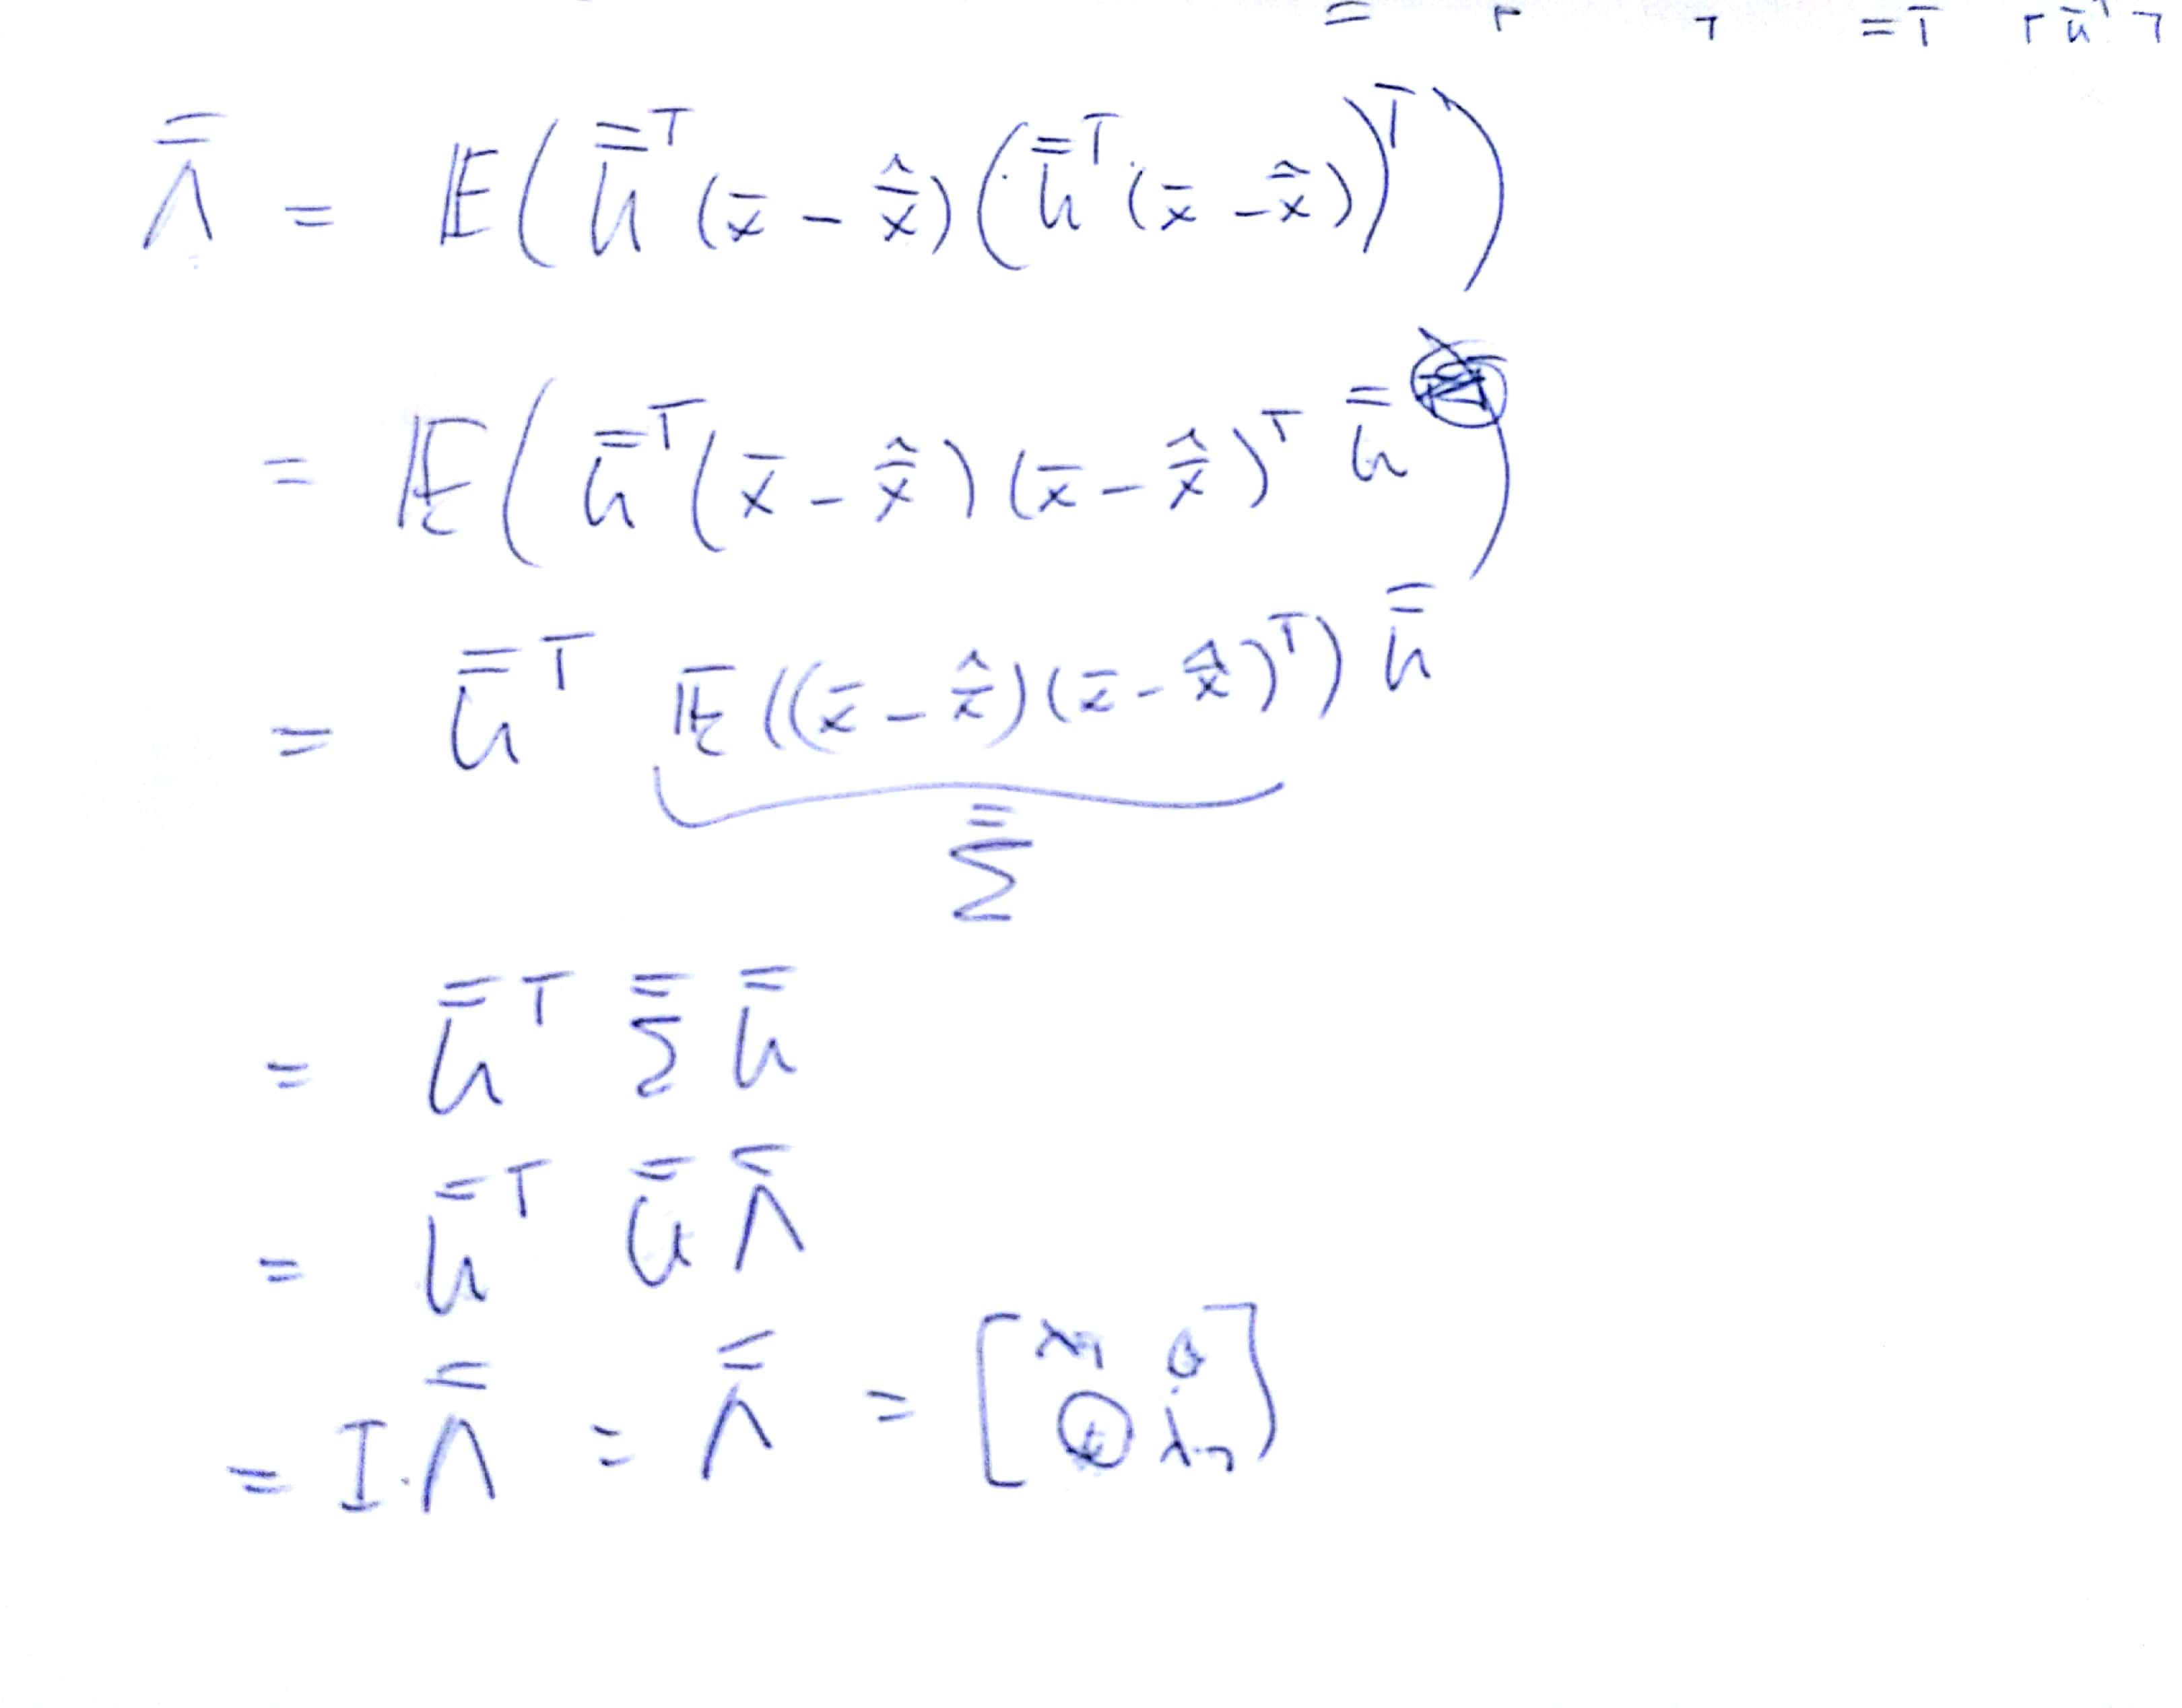 = ⌈ ⌉ =T ⌈ ū^T ⌉
Λ̿ = 𝔼( u̿^T (x̄ − x̄̂) ( u̿^T (x̄ − x̄̂) )^T )
= 𝔼( u̿^T (x̄ − x̄̂) (x̄ − x̄̂)^T u̿ )
= u̿^T 𝔼((x̄ − x̄̂)(x̄ − x̄̂)^T) u̿
Σ̿
= u̿^T Σ̿ u̿
= u̿^T u̿ Λ̿
= I · Λ̿ = Λ̿ = [ λ1 0
0 λn ]